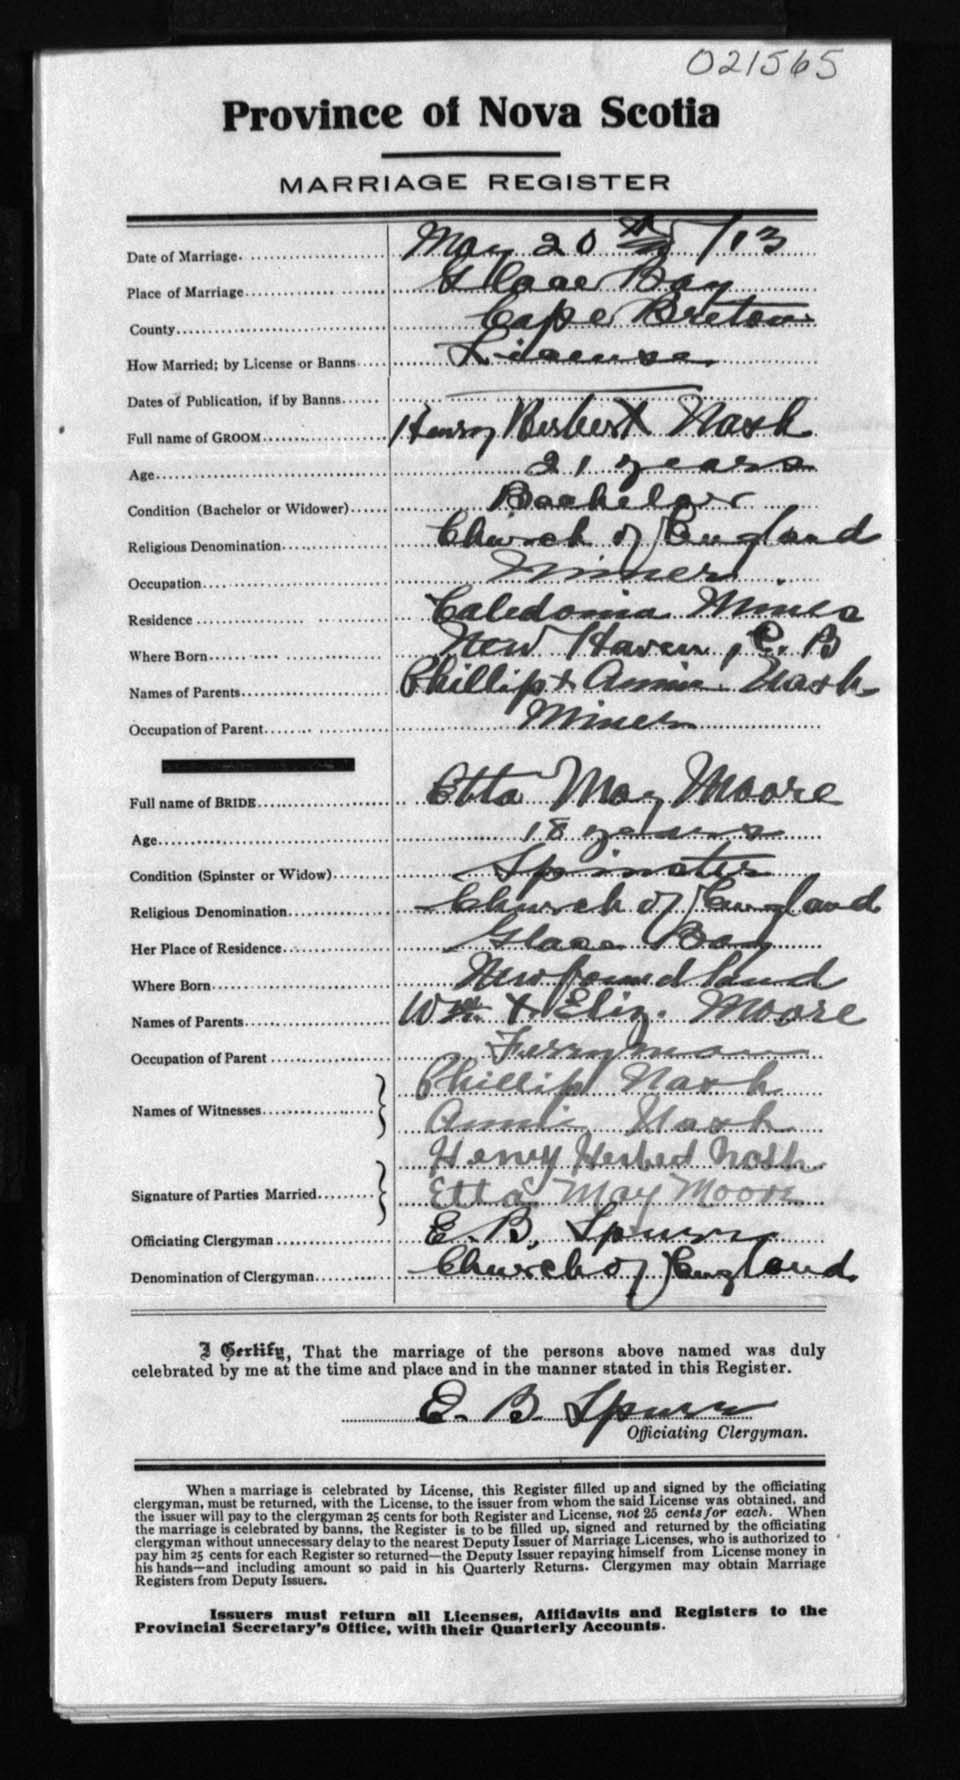 021565
Province of Nova Scotia
MARRIAGE REGISTER
Date of Marriage. May 20th /13
Place of Marriage Glace Bay
County Cape Breton
How Married; by License or Banns License
Dates of Publication, if by Banns
Full name of GROOM Henry Herbert Nash
Age 21 years
Condition (Bachelor or Widower) Bachelor
Religious Denomination Church of England
Occupation Miner
Residence Caledonia Mines
Where Born New Haven, C. B
Names of Parents Phillip & Annie Nash
Occupation of Parent Miner
Full name of BRIDE Etta May Moore
Age 18 years
Condition (Spinster or Widow) Spinster
Religious Denomination Church of England
Her Place of Residence Glace Bay
Where Born Newfoundland
Names of Parents Wm & Eliz. Moore
Occupation of Parent Ferryman
Names of Witnesses Phillip Nash
Annie Nash
Henry Herbert Nash
Signature of Parties Married Etta May Moore
Officiating Clergyman E. B. Spurr
Denomination of Clergyman Church of England
I Certify, That the marriage of the persons above named was duly
celebrated by me at the time and place and in the manner stated in this Register.
E. B. Spurr
Officiating Clergyman.
When a marriage is celebrated by License, this Register filled up and signed by the officiating
clergyman, must be returned, with the License, to the issuer from whom the said License was obtained, and
the issuer will pay to the clergyman 25 cents for both Register and License, not 25 cents for each. When
the marriage is celebrated by banns, the Register is to be filled up, signed and returned by the officiating
clergyman without unnecessary delay to the nearest Deputy Issuer of Marriage Licenses, who is authorized to
pay him 25 cents for each Register so returned—the Deputy Issuer repaying himself from License money in
his hands—and including amount so paid in his Quarterly Returns. Clergymen may obtain Marriage
Registers from Deputy Issuers.
Issuers must return all Licenses, Affidavits and Registers to the
Provincial Secretary's Office, with their Quarterly Accounts.